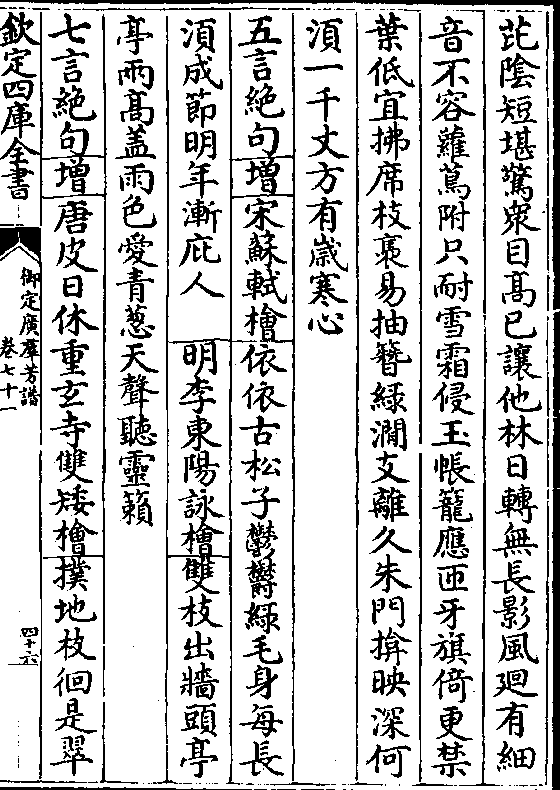 茈陰短堪驚衆目高已讓他林日轉無長影風廻有細
音不容蘿蔦附只耐雪霜侵玉帳籠應匝牙旗倚更禁
葉低宜拂席枝裊易抽簪綠澗支離久朱門揜映深何
湏一千丈方有歲寒心
五言絶句增宋蘇軾檜依依古松子鬱鬱綠毛身每長
湏成節明年漸庇人 明李東陽詠檜雙枝出牆頭亭
亭兩髙蓋雨色愛青葱天聲聽靈籟
七言絶句增唐皮日休重玄寺雙矮檜撲地枝徊是翠
欽定四庫全書
御定廣羣芳譜
卷七十一
四十六